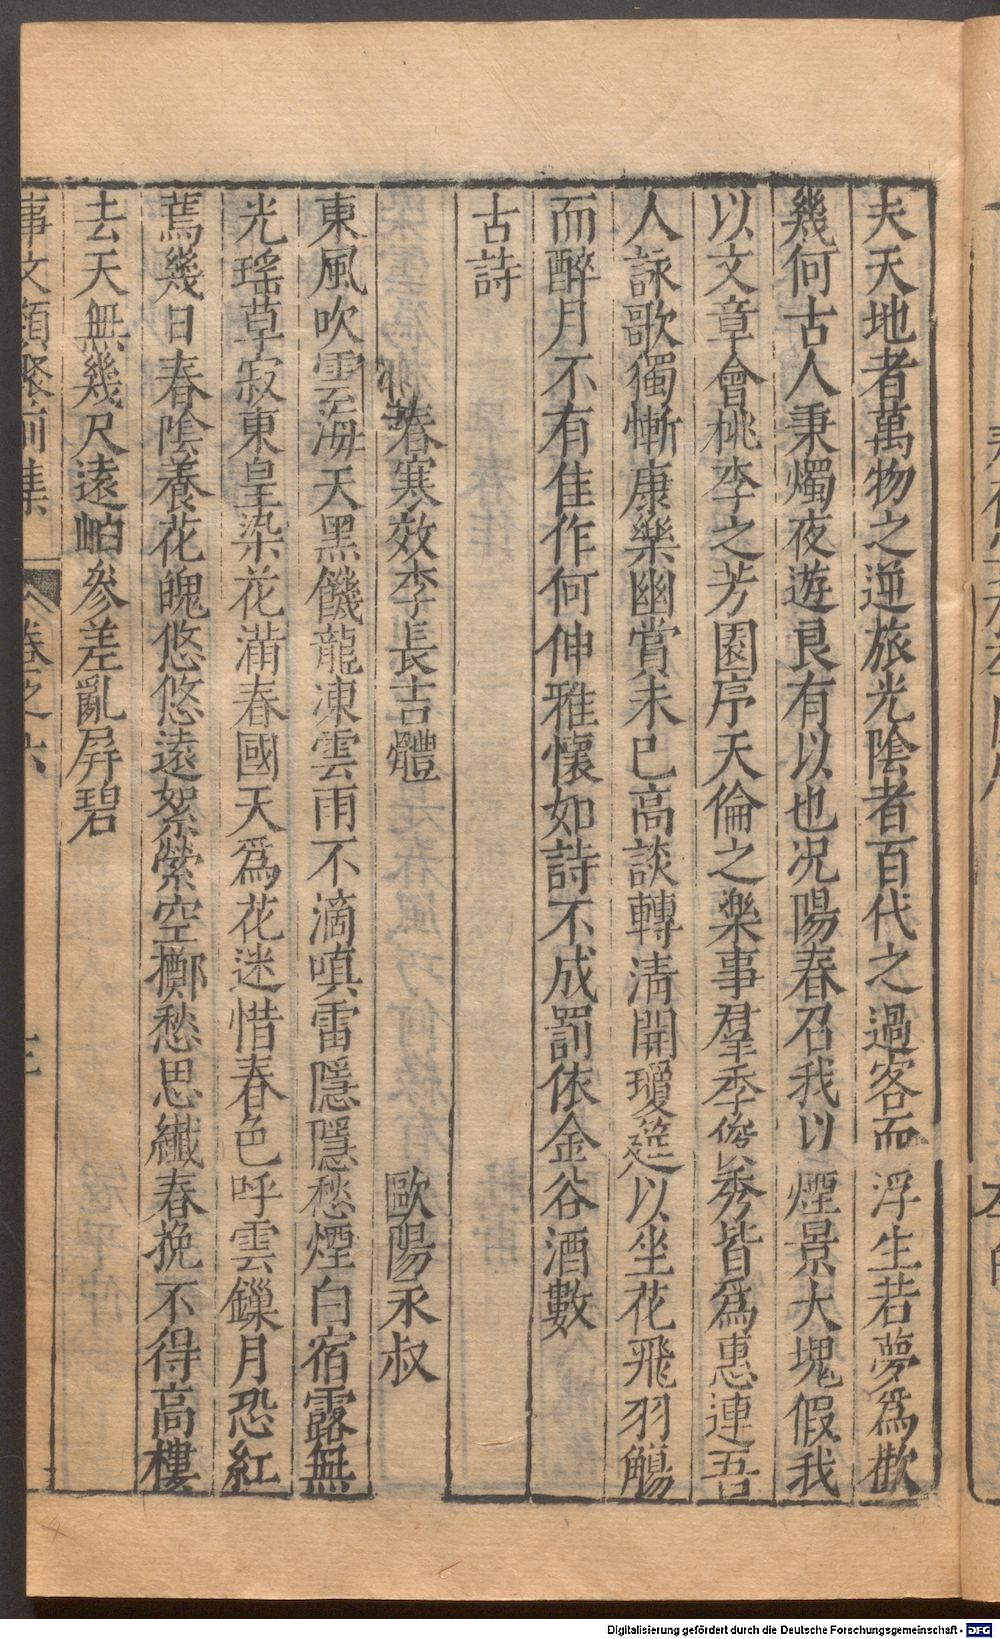 夫天地者萬物之逆旅光陰者百代之過客而浮生若夢爲歡
幾何古人秉燭夜遊良有以也况陽春召我以煙景大塊假我
以文章會桃李之芳園序天倫之楽事羣季俊秀皆爲惠連吾
人詠歌獨慚康樂幽賞未已高談轉清開瓊筵以坐花飛羽觴
而醉月不有佳作何伸雅懷如詩不成罰依金谷酒數
古詩
春寒效李長吉體 歐陽永叔
東風吹雲海天黑饑龍凍雲雨不滴嗔雷隱隱愁煙白宿露無
光瑤草寂東皇染花滿春國天爲花迷惜春色呼雲鏁月恐紅
蔫幾日春陰養花魄悠悠遠絮縈空擲愁思織春挽不得高樓
去天無幾尺遠岫參差亂屛碧
事文類聚前集 卷之六
Digitalisierung gefördert durch die Deutsche Forschungsgemeinschaft - DFG